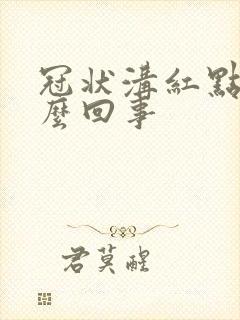 冠狀溝紅點
麼回事
君莫醒